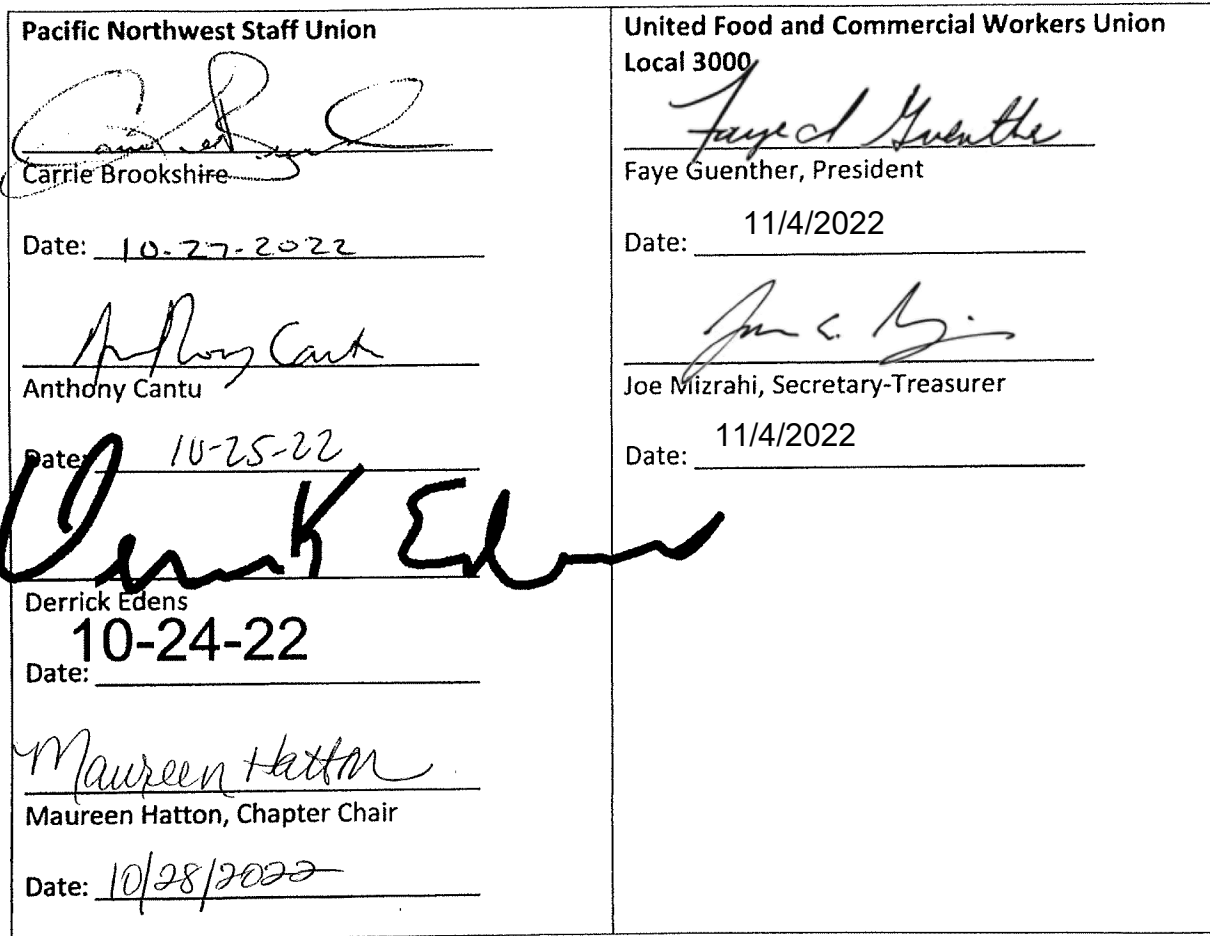 Pacific Northwest Staff Union
Carrie Brookshire
Date: 10-27-2022
Anthony Cantu
Anthony Cantu
Date: 10-25-22
Derrick Edens
Derrick Edens
10-24-22
Date:
Maureen Hatton
Maureen Hatton, Chapter Chair
Date: 10/28/2022
United Food and Commercial Workers Union
Local 3000
Faye Guenther
Faye Guenther, President
11/4/2022
Date:
Joe Mizrahi, Secretary-Treasurer
11/4/2022
Date: